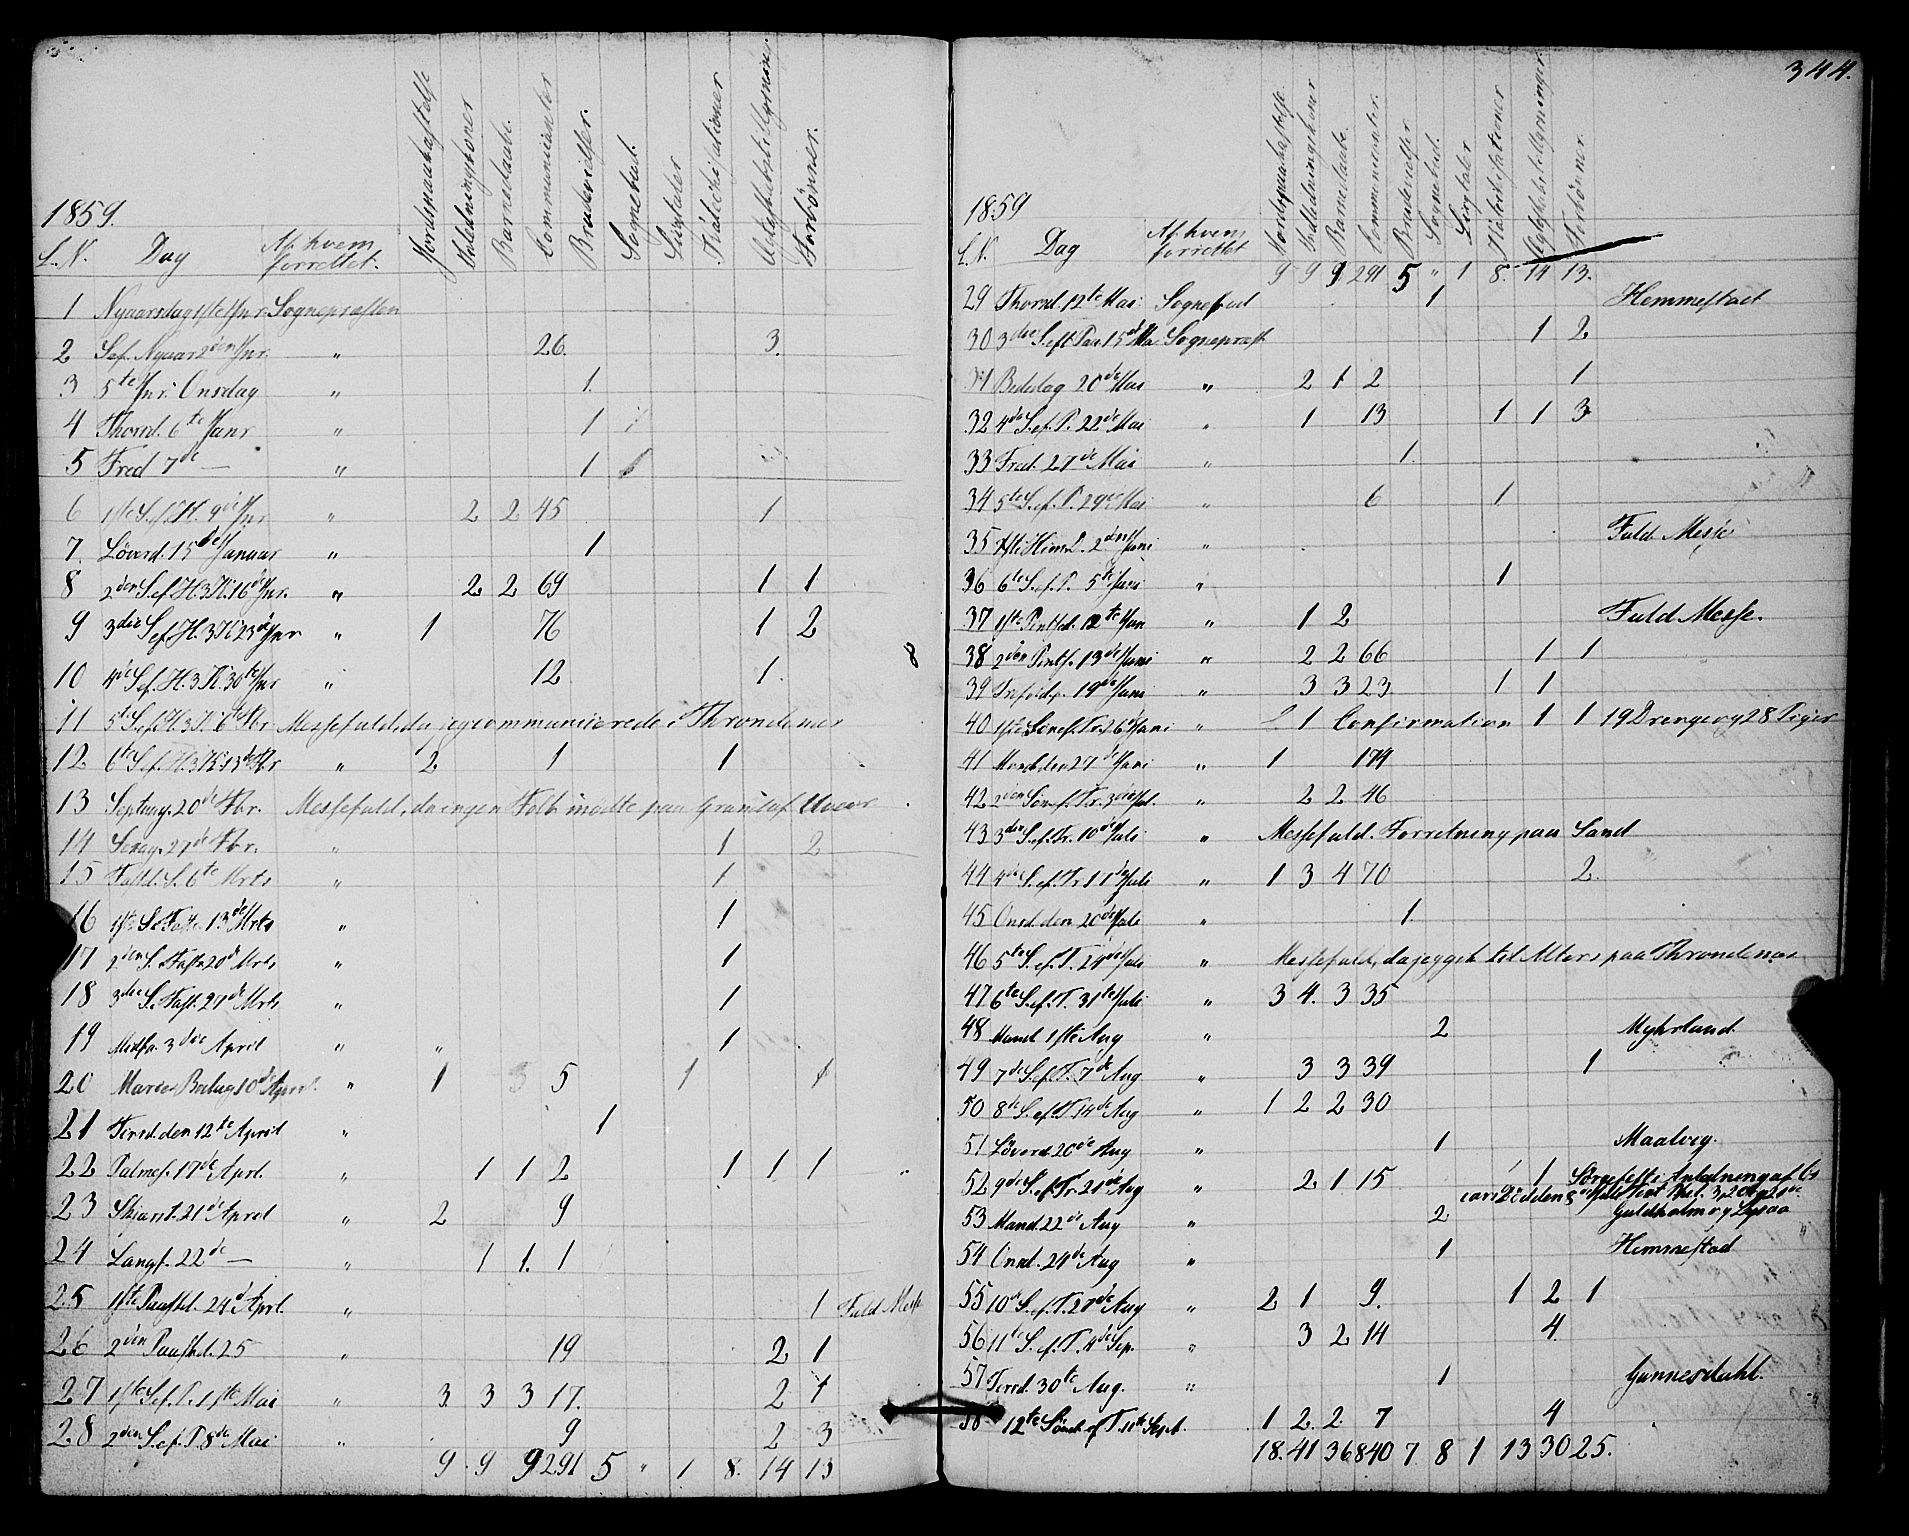 344.
1859.
L.N. Dag Af hvem forrettet. Jordspaakastelse Barnedaab. Communicanter Brudevielser. Sognebud. Liigtaler Forbönner.
1 Nyaarsdag 1ste Jnr Sognepræsten
2 S.ef. Nyaar 2den Jnr. " 26. 3.
3 5te Jnr. Onsdag " 1.
4 Thorsd. 6te Janr " 1
5 Fred 7de — " 1
6 1ste S.ef.H. 9de Jnr " 2 2 45 1
7. Löverd. 15de Januar " 1
8 2den S.ef.H.3K. 16de Jnr. " 2 2 69 1 1
9 3die S.ef.H.3K. 23de Jnr " 1 76 1 2
10 4de S.ef.H.3K. 30te Jnr " 12. 1.
11 5te S.ef.H.3K. 6te Fbr Messefald, da jeg communicerede i Throndenæs
12 6te S.ef.H.3K. 13de Fbr " 2 1 1
13 Septuag. 20de Fbr. Messefald, da ingen Folk mödte paa Grund af Uveir
14 Sexag. 27de Fbr. " 1 2
15 Fastel. S. 6te Mrts " 1
16 1ste S.i Faste 13de Mrts " 1
17 2den S. Faste 20de Mrts " 1
18 3die S. Fast. 27de Mrts " 1
19 Midfa. 3die April " " 1
20 Mariæ Bebud. 10de April. " 1 3 5 1 1
21 Tirsd. den 12te April " 1
22 Palmes. 17de Aprl. " 1 1 2 1 1 1
23 Skjært. 21de April " 2 9
24 Langf. 22de — " 1 1. 1
25 1ste Paaskd. 24de Aprl. " 1 Fuld Messe
26 2den Paaskd. 25 " 19 2 1
27 1ste S.ef.P. 1ste Mai " 3 3 3 17. 2 1
28 2den S.ef.P. 8de Mai " 9 2 3
9 9 9 291 5 " 1 8. 14 13
8
1859
L.N. Dag Af hvem forrettet Jordspaakastelse. Barnedaab. Communicanter. Brudevielser Sognebud. Liigtaler Forbönner.
9 9 9 291 5 " 1 8. 14 13.
29 Thorsd. 12te Mai Sognebud 1 Hemmestad
30 3die S.eft.Paa. 15de Ma Sognepræst 1 2
31 Bededag 20de Mai " 2 1 2 1
32 4de S.ef.P. 22de Mai " 1 13 1 1 3
33 Fred. 27de Mai " 1.
34 5te S.ef.P. 29de Mai " 6 1
35 Xsti Him. D. 2den Juni " Fuld Messe
36 6te S.ef.P. 5te Juni " 1
37 1ste Pintsd. 12te Jun " 1 2 Fuld Messe.
38 2den Pints. 13de Juni " 2 2 66 1 1
39 Trefold. 19de Juni " 3 3 23 1 1
40 1ste Sön.ef.Tr. 26de Juni " 2 1 Confirmation 1 1 19 Drenge og 28 Piger
41 Mand. den 27de Juni " 1 174
42 2den Sön.ef.Tr. 3die Jul. " 2 2 46
43 3die S.ef.Tr. 10de Juli " Messefald. Forretning paa Sand
44 4de S.ef.Tr 17de Juli " 1 3 4 70 2.
45 Onsd. den 20de Juli " 1.
46 5te S.ef.T. 24de Juli " Messefald, da jeg gik til Alters paa Throndenæs
47 6te S.ef.T. 31te Juli " 3 4. 3 35
48 Mand 1ste Aug " 2 Myhrland.
49 7de S.ef.T. 7de Aug " 3 3 39 1
50 8de S.ef.T. 14de Aug " 1 2 2 30
51 Löverd. 20de Aug " 1 Maalveg.
52 9de S.ef.Tr. 21de Aug " 2 1 15 1 Sörgefest i Anledning af
53 Mand. 22de Aug " 2 Guldholm og Lysaa
54 Onsd. 24de Aug " 1 Hemmestad
55 10de S.ef.T. 28de Aug " 2 1 9. 1 2 1
56 11te S.ef.T. 4de Sep. " 3 2 14 4.
57 Tirsd. 30te Aug. " 1 Gunnesdahl.
58 12te Sönd ef T. 11te Sept. 1 2. 2 7 4
18. 41 36 840 7 8 1 13 30 25.